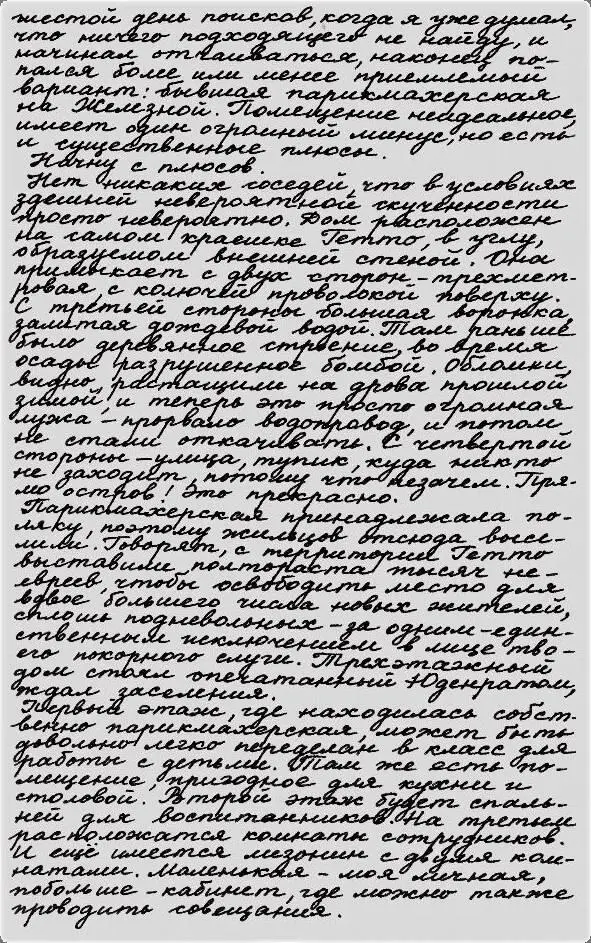 шестой день поисков, когда я уже думал,
что ничего подходящего не найду, и
начинал отчаиваться, наконец по-
пался более или менее приемлемый
вариант: бывшая парикмахерская
на Железной. Помещение неидеальное,
имеет один огромный минус, но есть
и существенные плюсы.
Начну с плюсов.
Нет никаких соседей, что в условиях
здешней невероятной скученности
просто невероятно. Дом расположен
на самом краешке Гетто, в углу,
образуемом внешней стеной. Она
примыкает с двух сторон - трехмет-
ровая, с колючей проволокой поверху.
С третьей стороны большая воронка,
залитая дождевой водой. Там раньше
было деревянное строение, во время
осады разрушенное бомбой. Обломки,
видно, растащили на дрова прошлой
зимой, и теперь это просто огромная
лужа - прорвало водопровод, и потом
не стали откачивать. С четвертой
стороны - улица, тупик, куда никто
не заходит, потому что незачем. Пря-
мо остров! Это прекрасно.
Парикмахерская принадлежала по-
ляку, поэтому жильцов отсюда высе-
лили. Говорят, с территории Гетто
выставили полтораста тысяч не-
евреев, чтобы освободить место для
вдвое большего числа новых жителей,
сплошь подневольных - за одним-един-
ственным исключением в лице тво-
его покорного слуги. Трехэтажный
дом стоял опечатанный Юденратом,
ждал заселения.
Первый этаж, где находилась собст-
венно парикмахерская, может быть
довольно легко переделан в класс для
работы с детьми. Там же есть по-
мещение, пригодное для кухни и
столовой. Второй этаж будет спаль-
ней для воспитанников. На третьем
расположатся комнаты сотрудников.
И ещё имеется мезонин с двумя ком-
натами. Маленькая - моя личная,
побольше - кабинет, где можно также
проводить совещания.